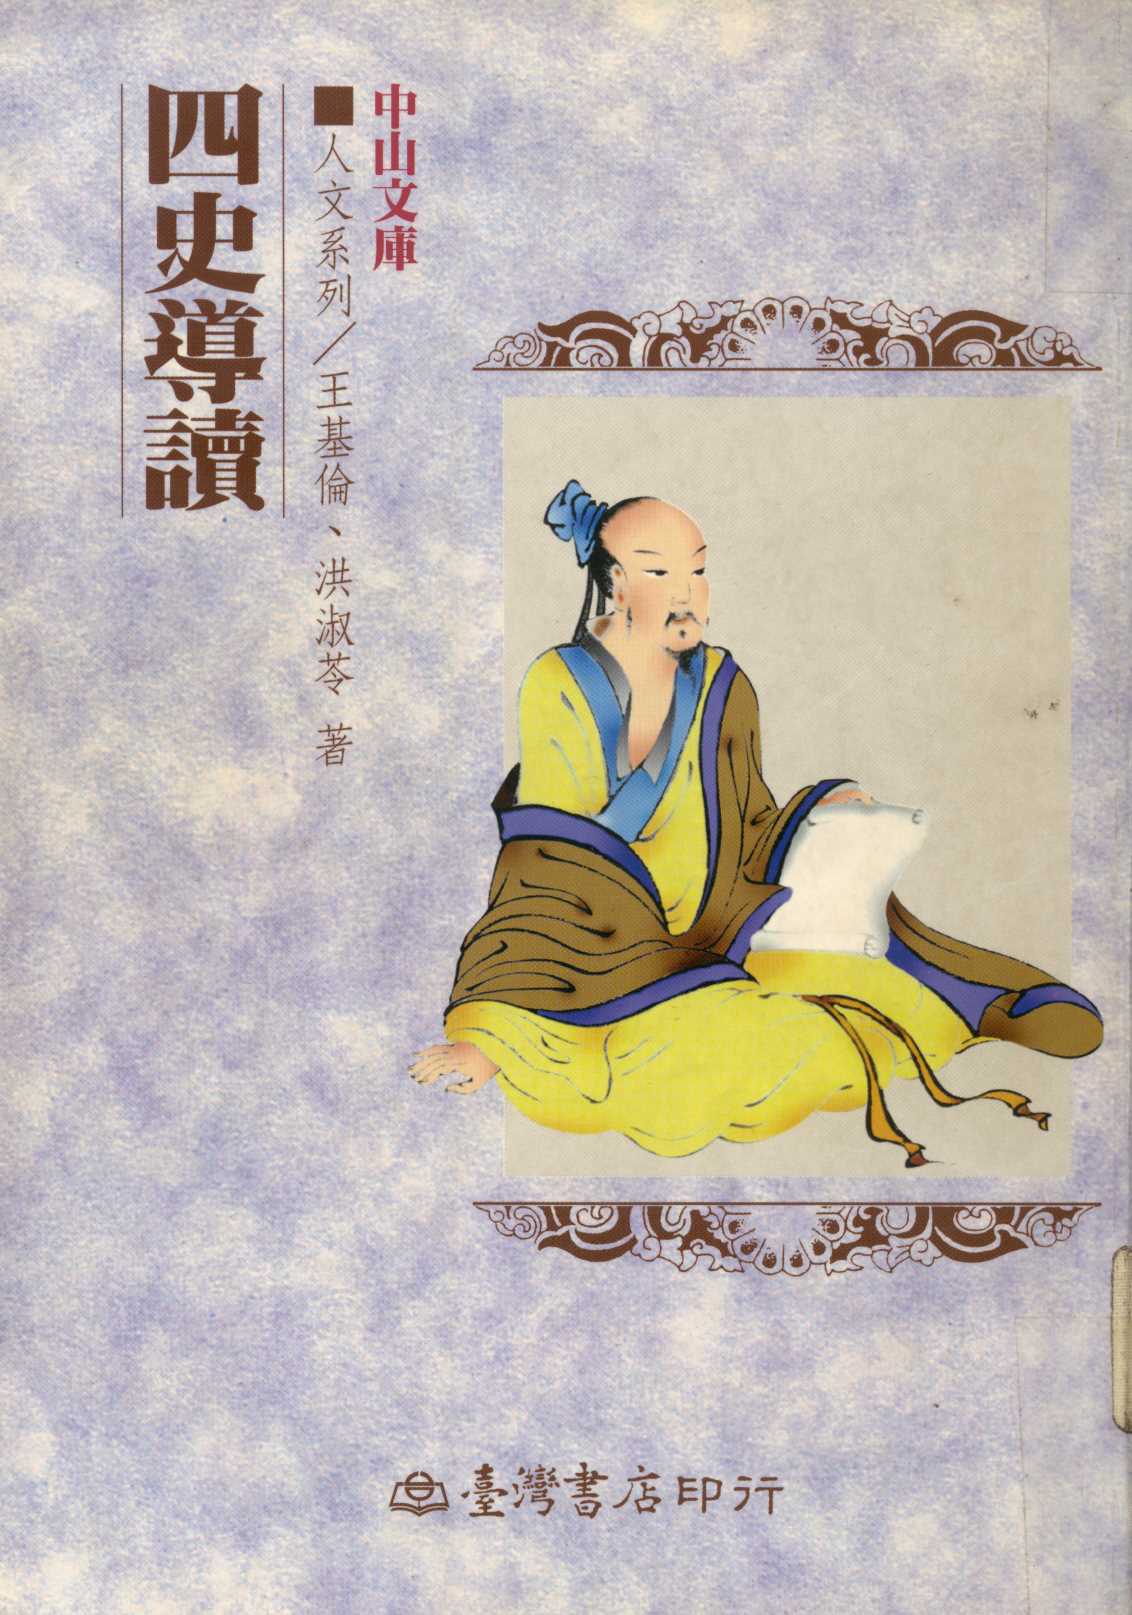 中山文庫
■人文系列／王基倫、洪淑苓 著
四史導讀
臺灣書店印行